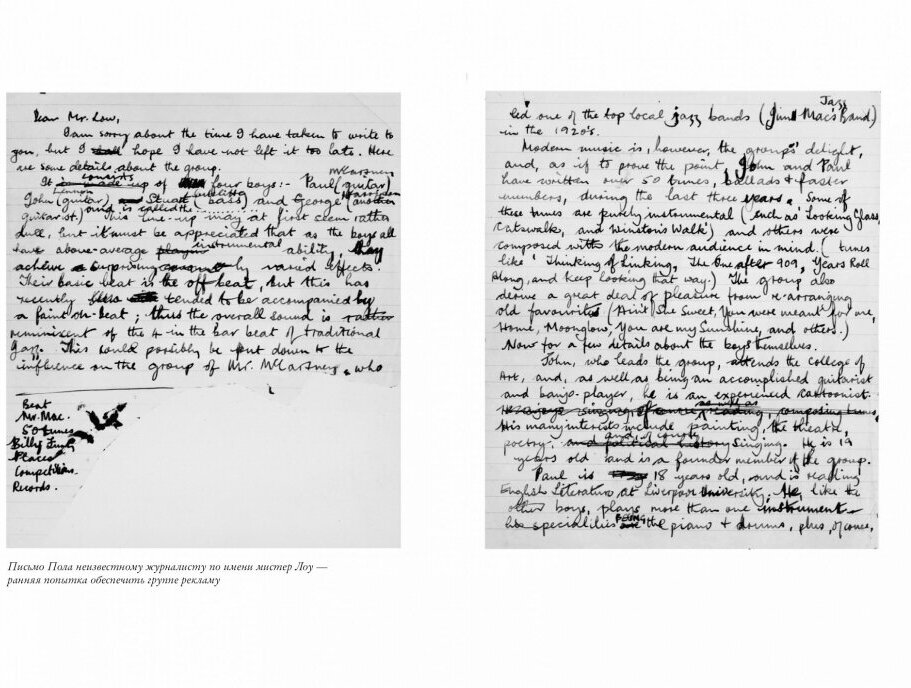 Dear Mr. Low,
I am sorry about the time I have taken to write to
you, but I hope I have not left it too late. Here
are some details about the group.
McCartney
consists
It is made up of four boys:- Paul (guitar)
Lennon
Harrison
John (guitar) Stuart (bass) and George (another
and is called the
guitarist) This line-up may at first seem rather
dull, but it must be appreciated that as the boys all
instrumental
have above-average playing ability, they
achieve a surprising by varied effects.
Their basic beat is the off beat, but this has
recently tended to be accompanied by
a faint on-beat; thus the overall sound is rather
reminiscent of the 4-in the bar beat of traditional
jazz. This could possibly be put down to the
influence on the group of Mr. McCartney, who
Beat
Mr. Mac.
50 tunes
Places
Competitions.
Records.
Jazz
led one of the top local jazz bands (Jim Mac's Band)
in the 1920's.
Modern music is, however, the groups' delight,
and, as if to prove the point, John and Paul
have written over 50 tunes, ballads & faster
numbers, during the last three years. Some of
these tunes are purely instrumental (such as 'Looking Glass,
Catswalk, and Winston's Walk') and others were
composed with the modern audience in mind. (tunes
like 'Thinking of Linking, The One after 909, Years Roll
Along, and Keep looking that way.) The group also
derive a great deal of pleasure from re-arranging
old favourites (Ain't She Sweet, You were meant for me,
Home, Moonglow, You are my Sunshine, and others.)
Now for a few details about the boys themselves.
John, who leads the group, attends the College of
Art, and, as well as being an accomplished guitarist
and banjo-player, he is an experienced cartoonist.
as well as
His many interests include painting, the theatre,
and, of course,
poetry, and political history singing. He is 19
years old and is a founder member of the group.
Paul is 18 years old, and is reading
English Literature at Liverpool University. He, like the
other boys, plays more than one instrument -
being
his specialities are the piano & drums, plus, of course,
Письмо Пола неизвестному журналисту по имени мистер Лоу —
ранняя попытка обеспечить группе рекламу